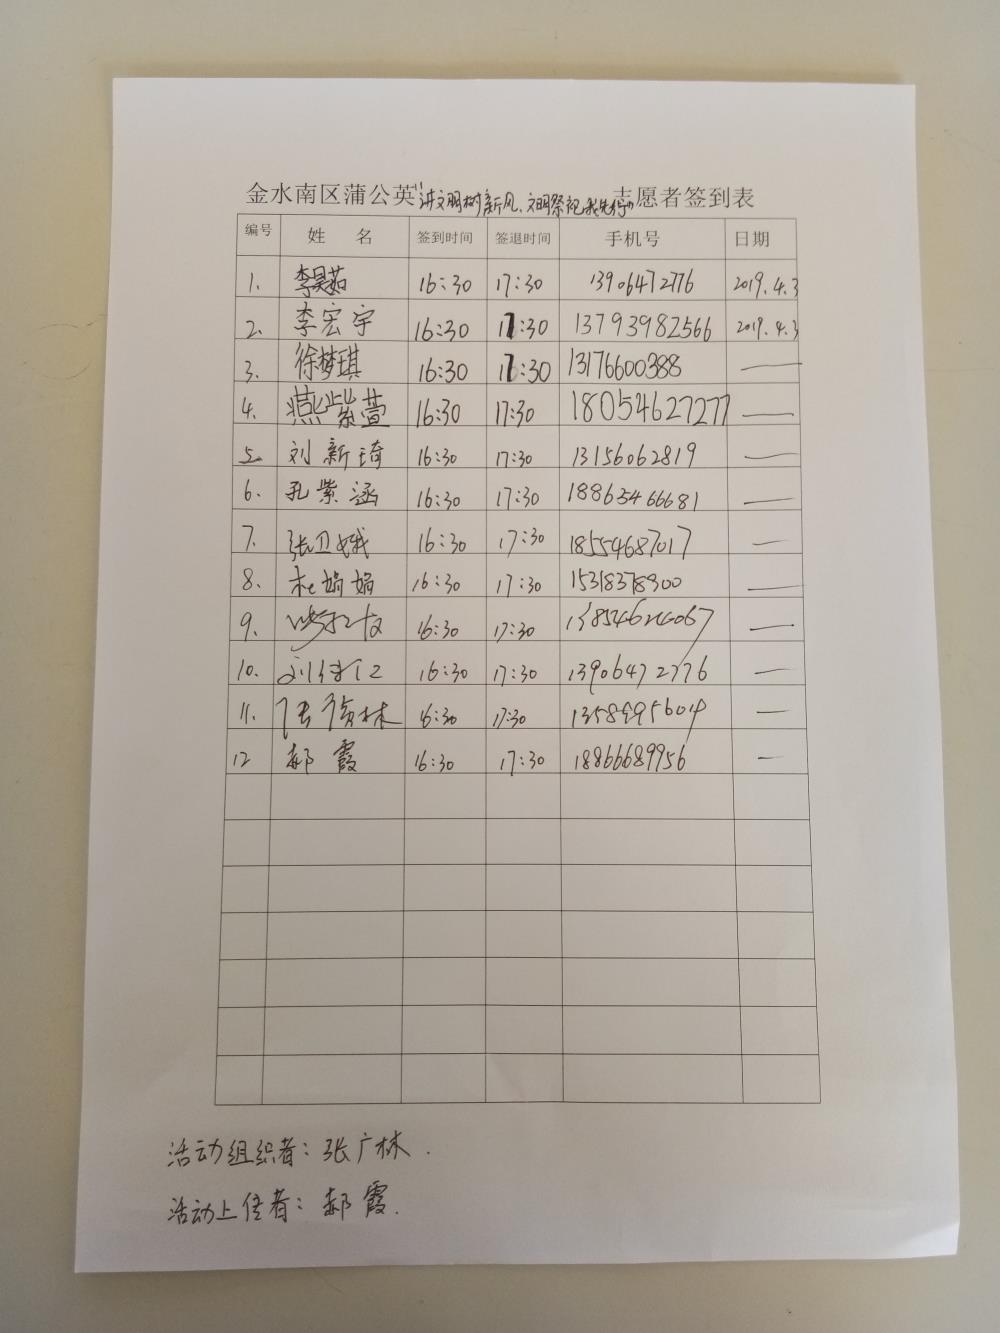 金水南区蒲公英“讲文明树新风、文明祭祀我先行”志愿者签到表
编号 姓 名 签到时间 签退时间 手机号 日期
1. 李昊茹 16:30 17:30 13906472776 2019.4.3
2. 李宏宇 16:30 17:30 13793982566 2019.4.3
3. 徐梦琪 16:30 17:30 13176600388 —
4. 燕紫萱 16:30 17:30 18054627277 —
5. 刘新琦 16:30 17:30 13156062819 —
6. 孔紫涵 16:30 17:30 18863466681 —
7. 张卫娥 16:30 17:30 18554687017 —
8. 杜娟娟 16:30 17:30 15318378300 —
9. 16:30 17:30 —
10. 16:30 17:30 13906472776 —
11. 16:30 17:30 —
12 郝霞 16:30 17:30 18866689956 —
活动组织者：张广林.
活动上传者：郝霞.